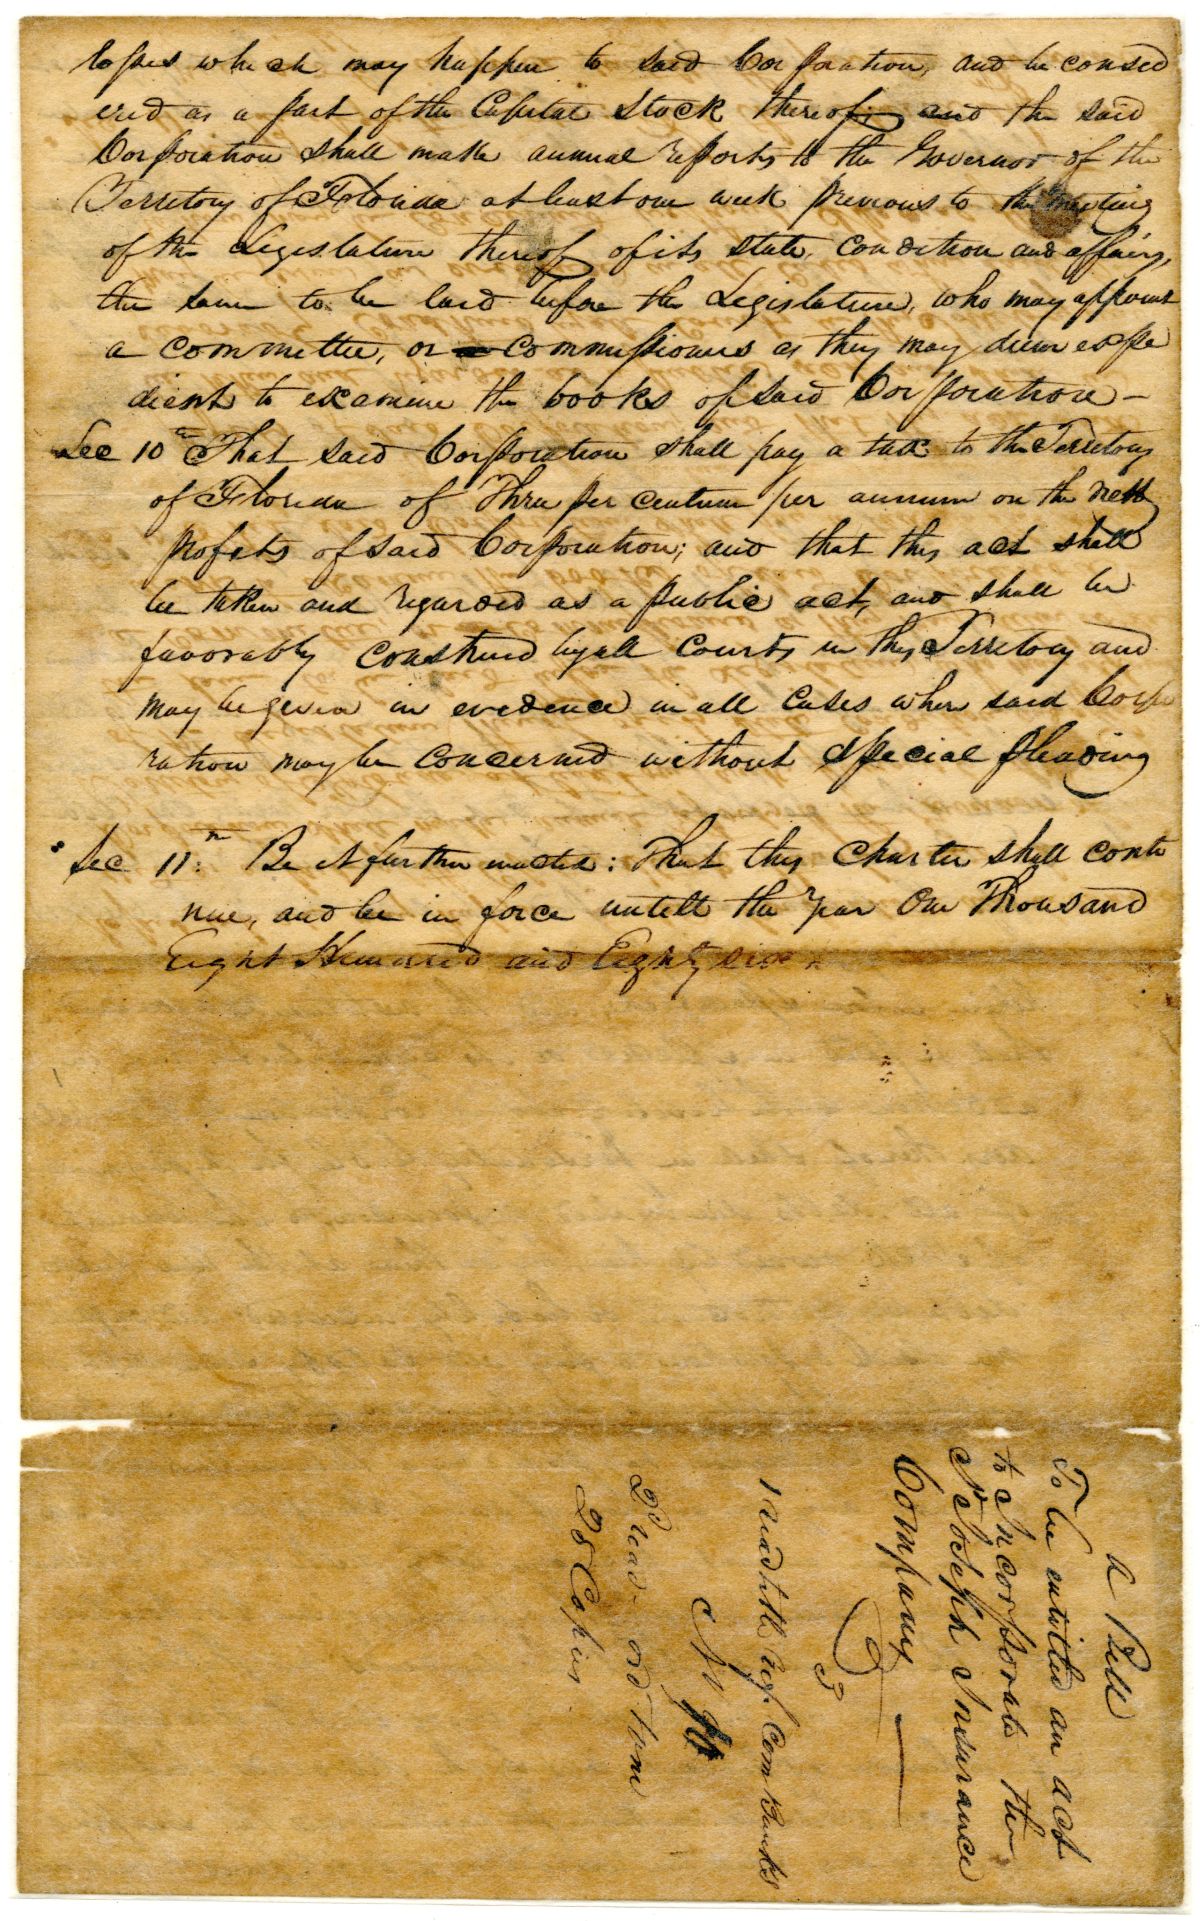 losses which may happen to said Corporation, and be consid
ered as a part of the Capital Stock thereof; and the said
Corporation shall make annual reports to the Governor of the
Territory of Florida at least one week previous to the meeting
of the Legislature thereof of its state, condition and affairs,
the same to be laid before the Legislature, who may appoint
a committee, or commissioners as they may deem expe
dient to examine the books of said Corporation –
Sec 10th That said Corporation shall pay a tax to the Territory
of Florida of Three per centum per annum on the nett
profits of said Corporation; and that this act shall
be taken and regarded as a public act, and shall be
favorably construed by all Courts in this Territory and
may be given in evidence in all cases where said Corpo
ration may be concerned without special pleading
Sec 11th Be it further enacted: That this Charter shall conti
nue, and be in force untill the year One Thousand
Eight Hundred and Eighty six
a Bill
To be entitled an act
to Incorporate the
St Joseph Insurance
Company
3
1 read & ref. Com Banks
2d read – ord prin
25 Copies